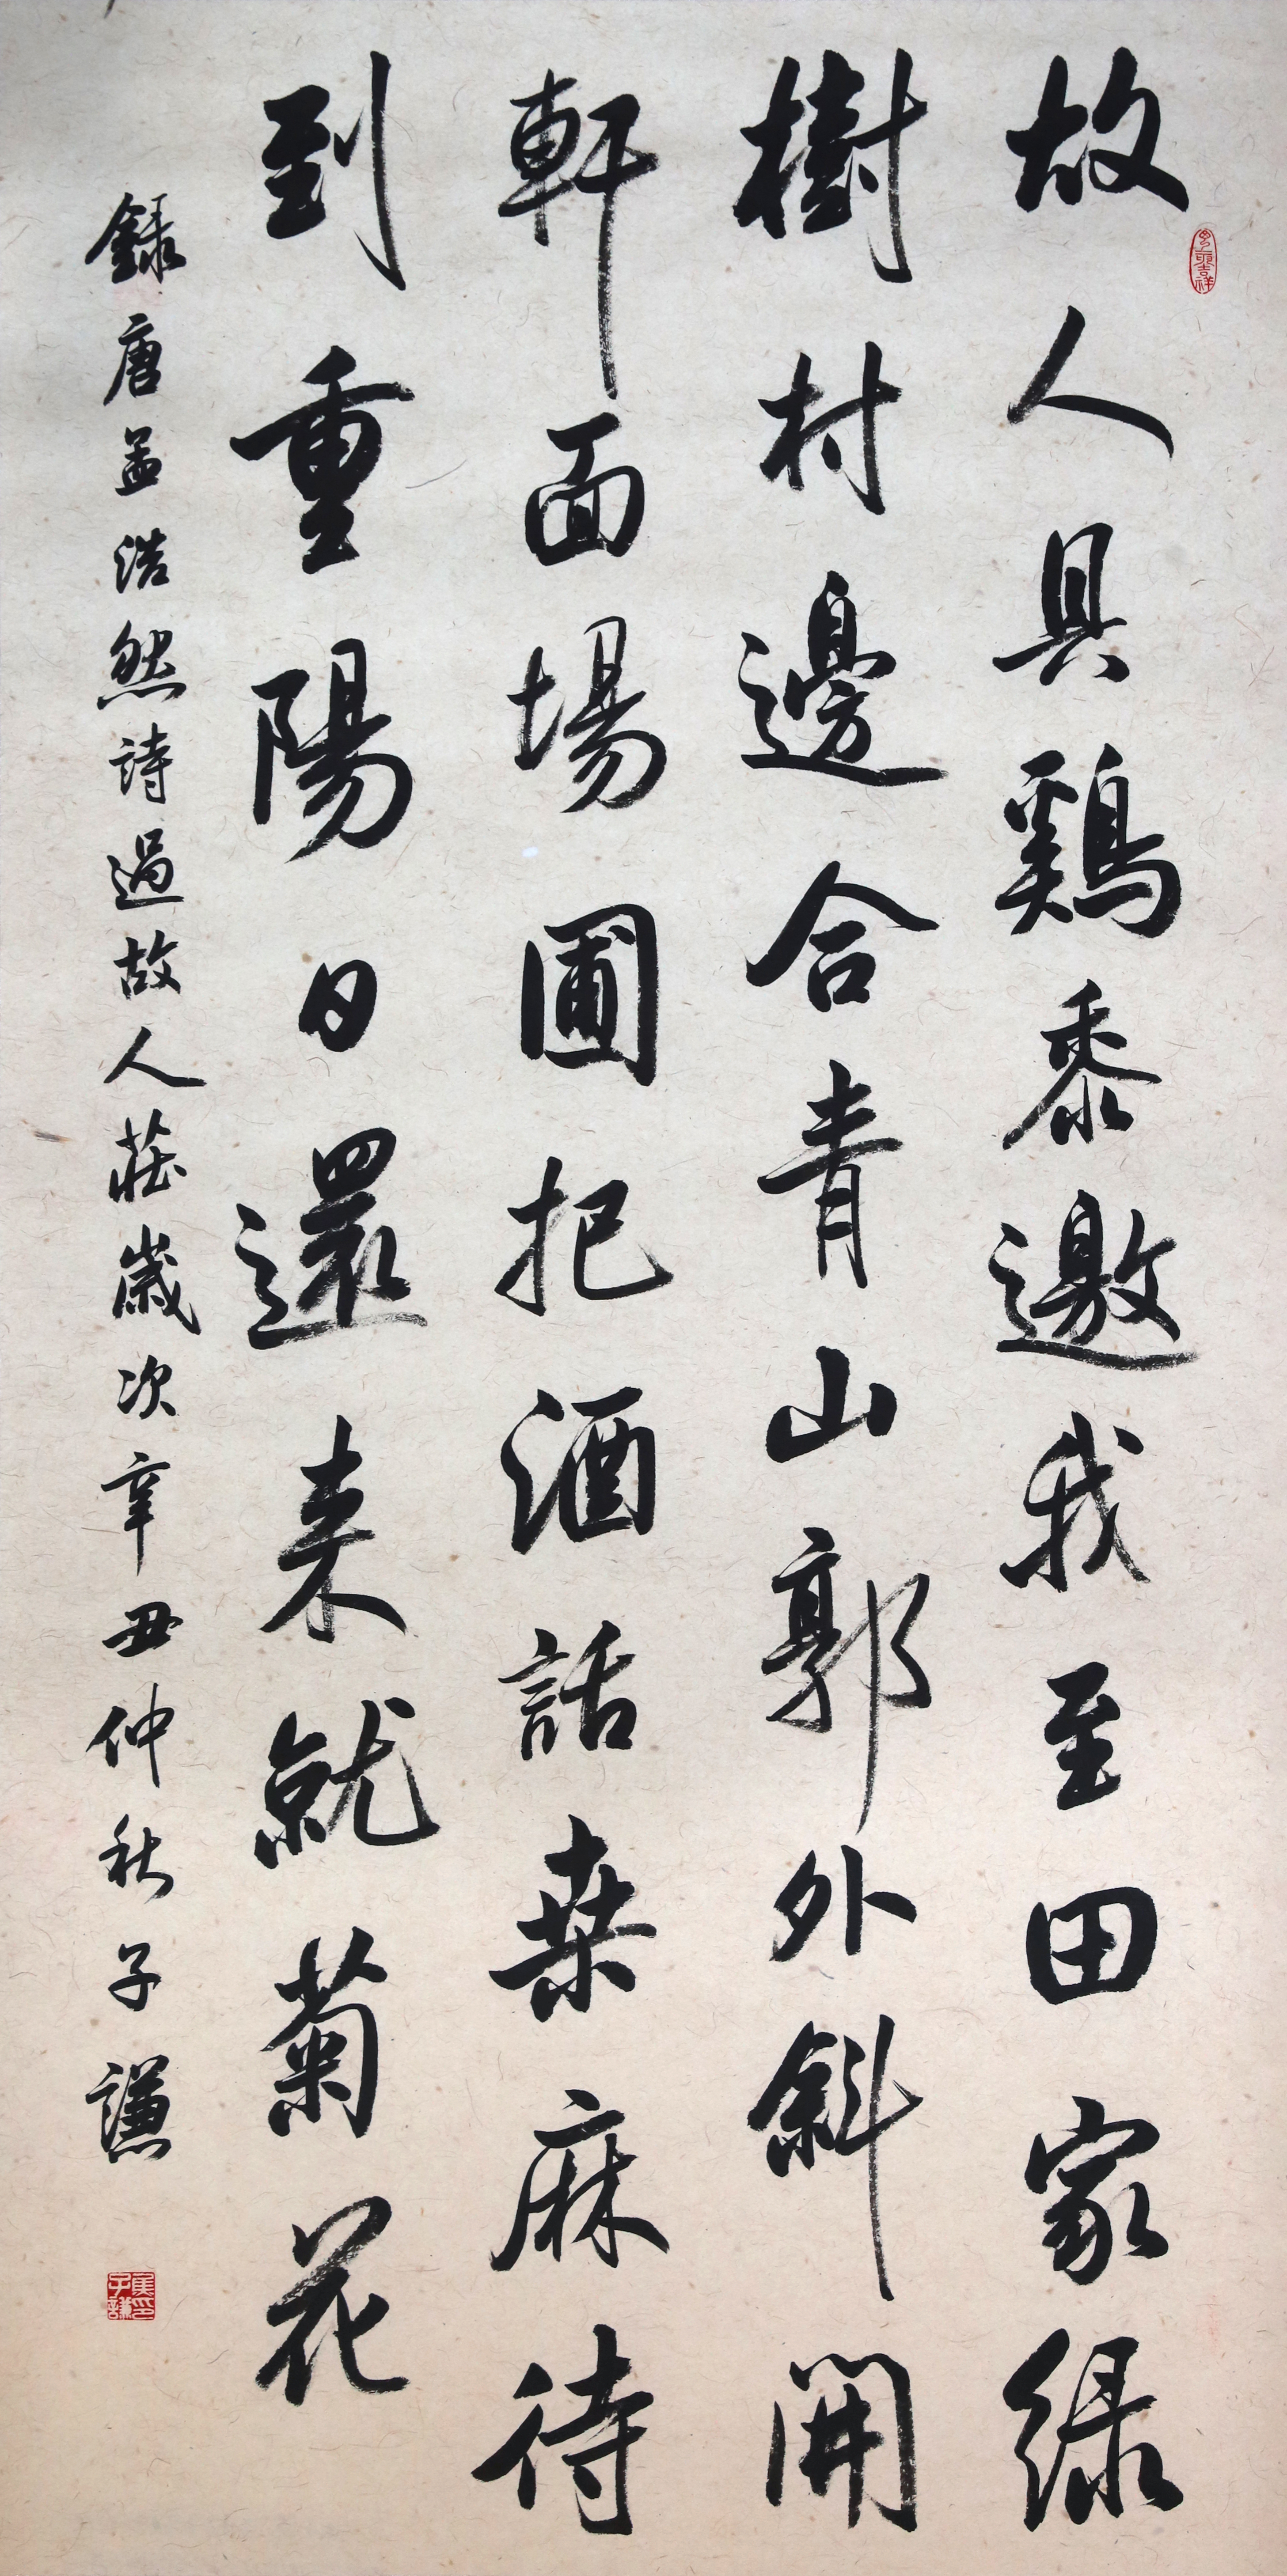 故人具鷄黍邀我至田家緑
樹村邊合青山郭外斜開
軒面場圃把酒話桒麻待
到重陽日還来就菊花
録唐孟浩然詩過故人莊歲次辛丑仲秋子謙